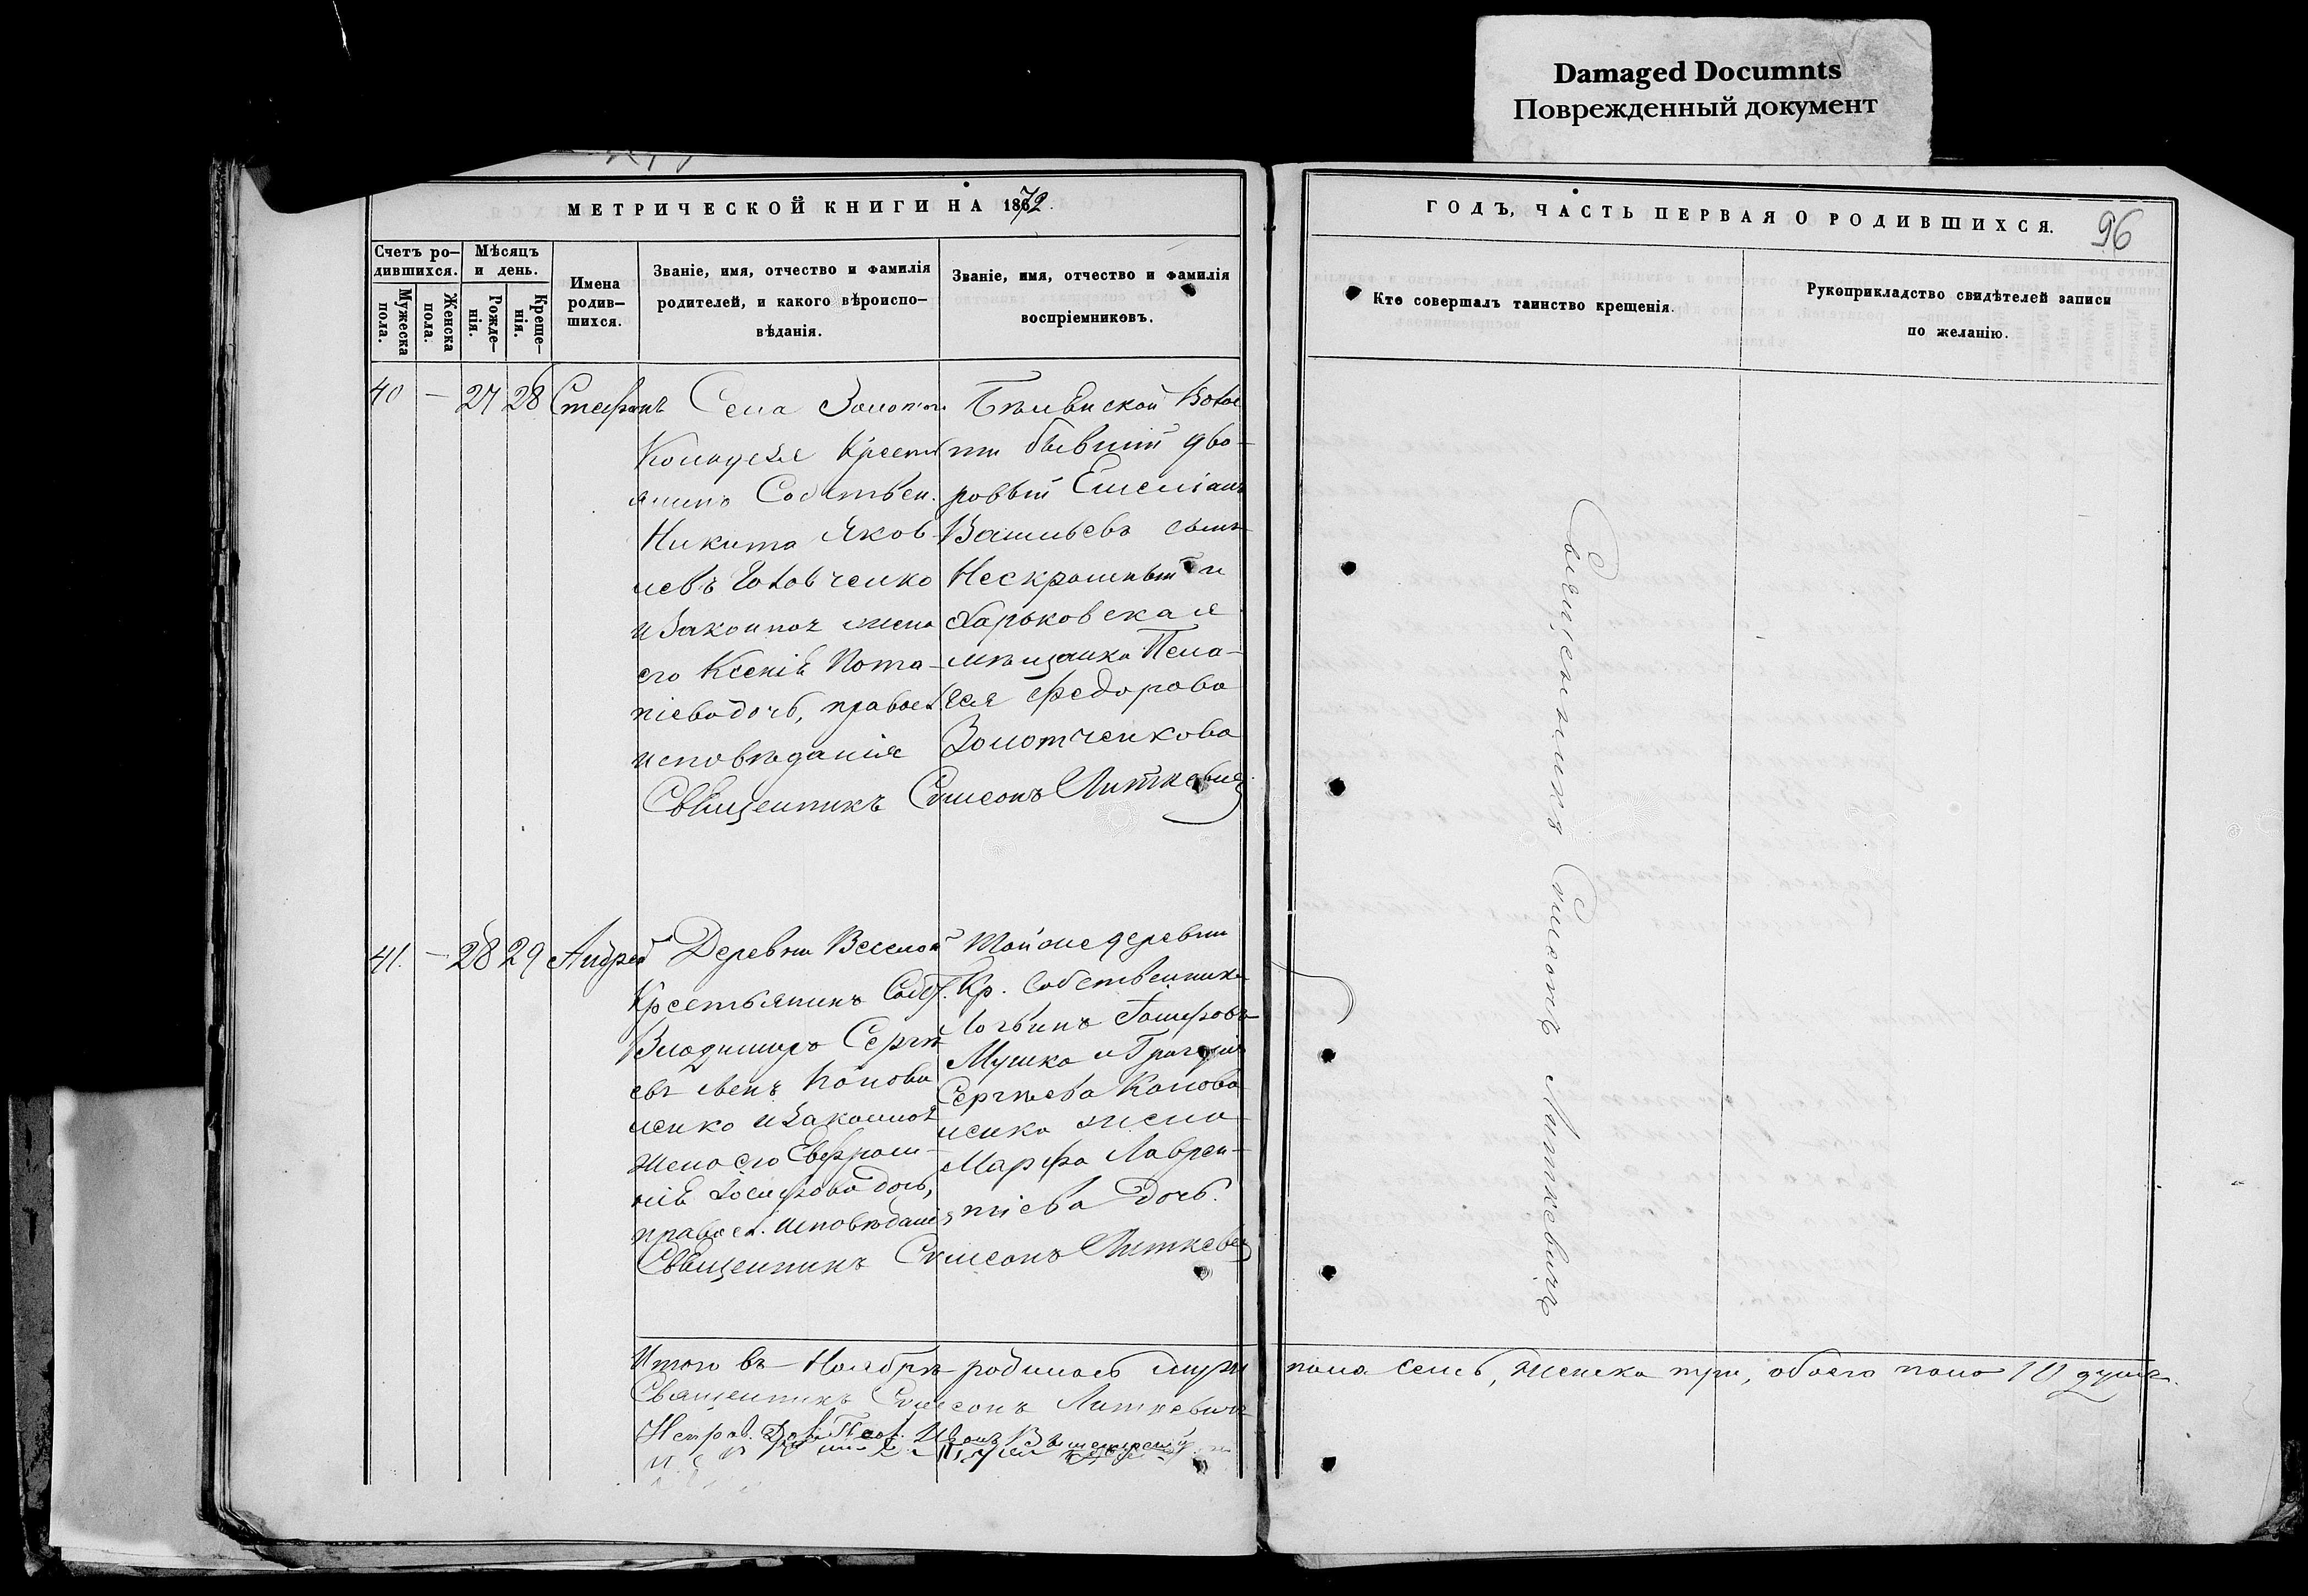 Damaged Documnts
Поврежденный документ
МЕТРИЧЕСКОЙ КНИГИ НА 1872.
ГОДЪ, ЧАСТЬ ПЕРВАЯ О РОДИВШИХСЯ.
96
Счетъ ро–
дившихся.
Мужеска
пола.
Женска
пола.
Мѣсяцъ
и день.
Рожде–
нія.
Креще–
нія.
Имена
родив–
шихся.
Званіе, имя, отчество и фамилія
родителей, и какого вѣроиспо–
вѣданія.
Званіе, имя, отчество и фамилія
воспріемниковъ.
Кто совершалъ таинство крещенія.
Рукоприкладство свидѣтелей записи
по желанію.
40 — 27 28 Стефанъ
Села
Колодезя Крестья
янинъ Собствен.
Никита Яков
левъ Головченко
и Законная жена
его Ксенія Пота–
піева дочь, правосл.
исповѣданія
Волос
ти бывшій дво–
ровый Емеліанъ
Васильевъ сынъ
и
Харьковская
мѣщанка Пела–
гея Федорова
Золотченкова
Священникъ Симеонъ Литкевичъ
41. — 28 29 Андрей
Деревни Веселой
Крестьянинъ Собст.
Владиміръ Сергѣ
евъ сынъ Конова
ленко и Законная
жена его Евфроси–
нія Іосифова дочь,
правосл. исповѣданія
Той же деревни
Кр. Собственникъ
Логвинъ
Мушка и Григорія
Сергѣева Конова
ленка жена
Марфа Лаврен–
тіева дочь.
Священникъ Симеонъ Литкевичъ
Священникъ Симеонъ Литкевичъ
Итого въ Ноябрѣ родилось муж пола семь, женска три, обоего пола 10 душъ.
Священникъ Симеонъ Литкевичъ
Иванъ